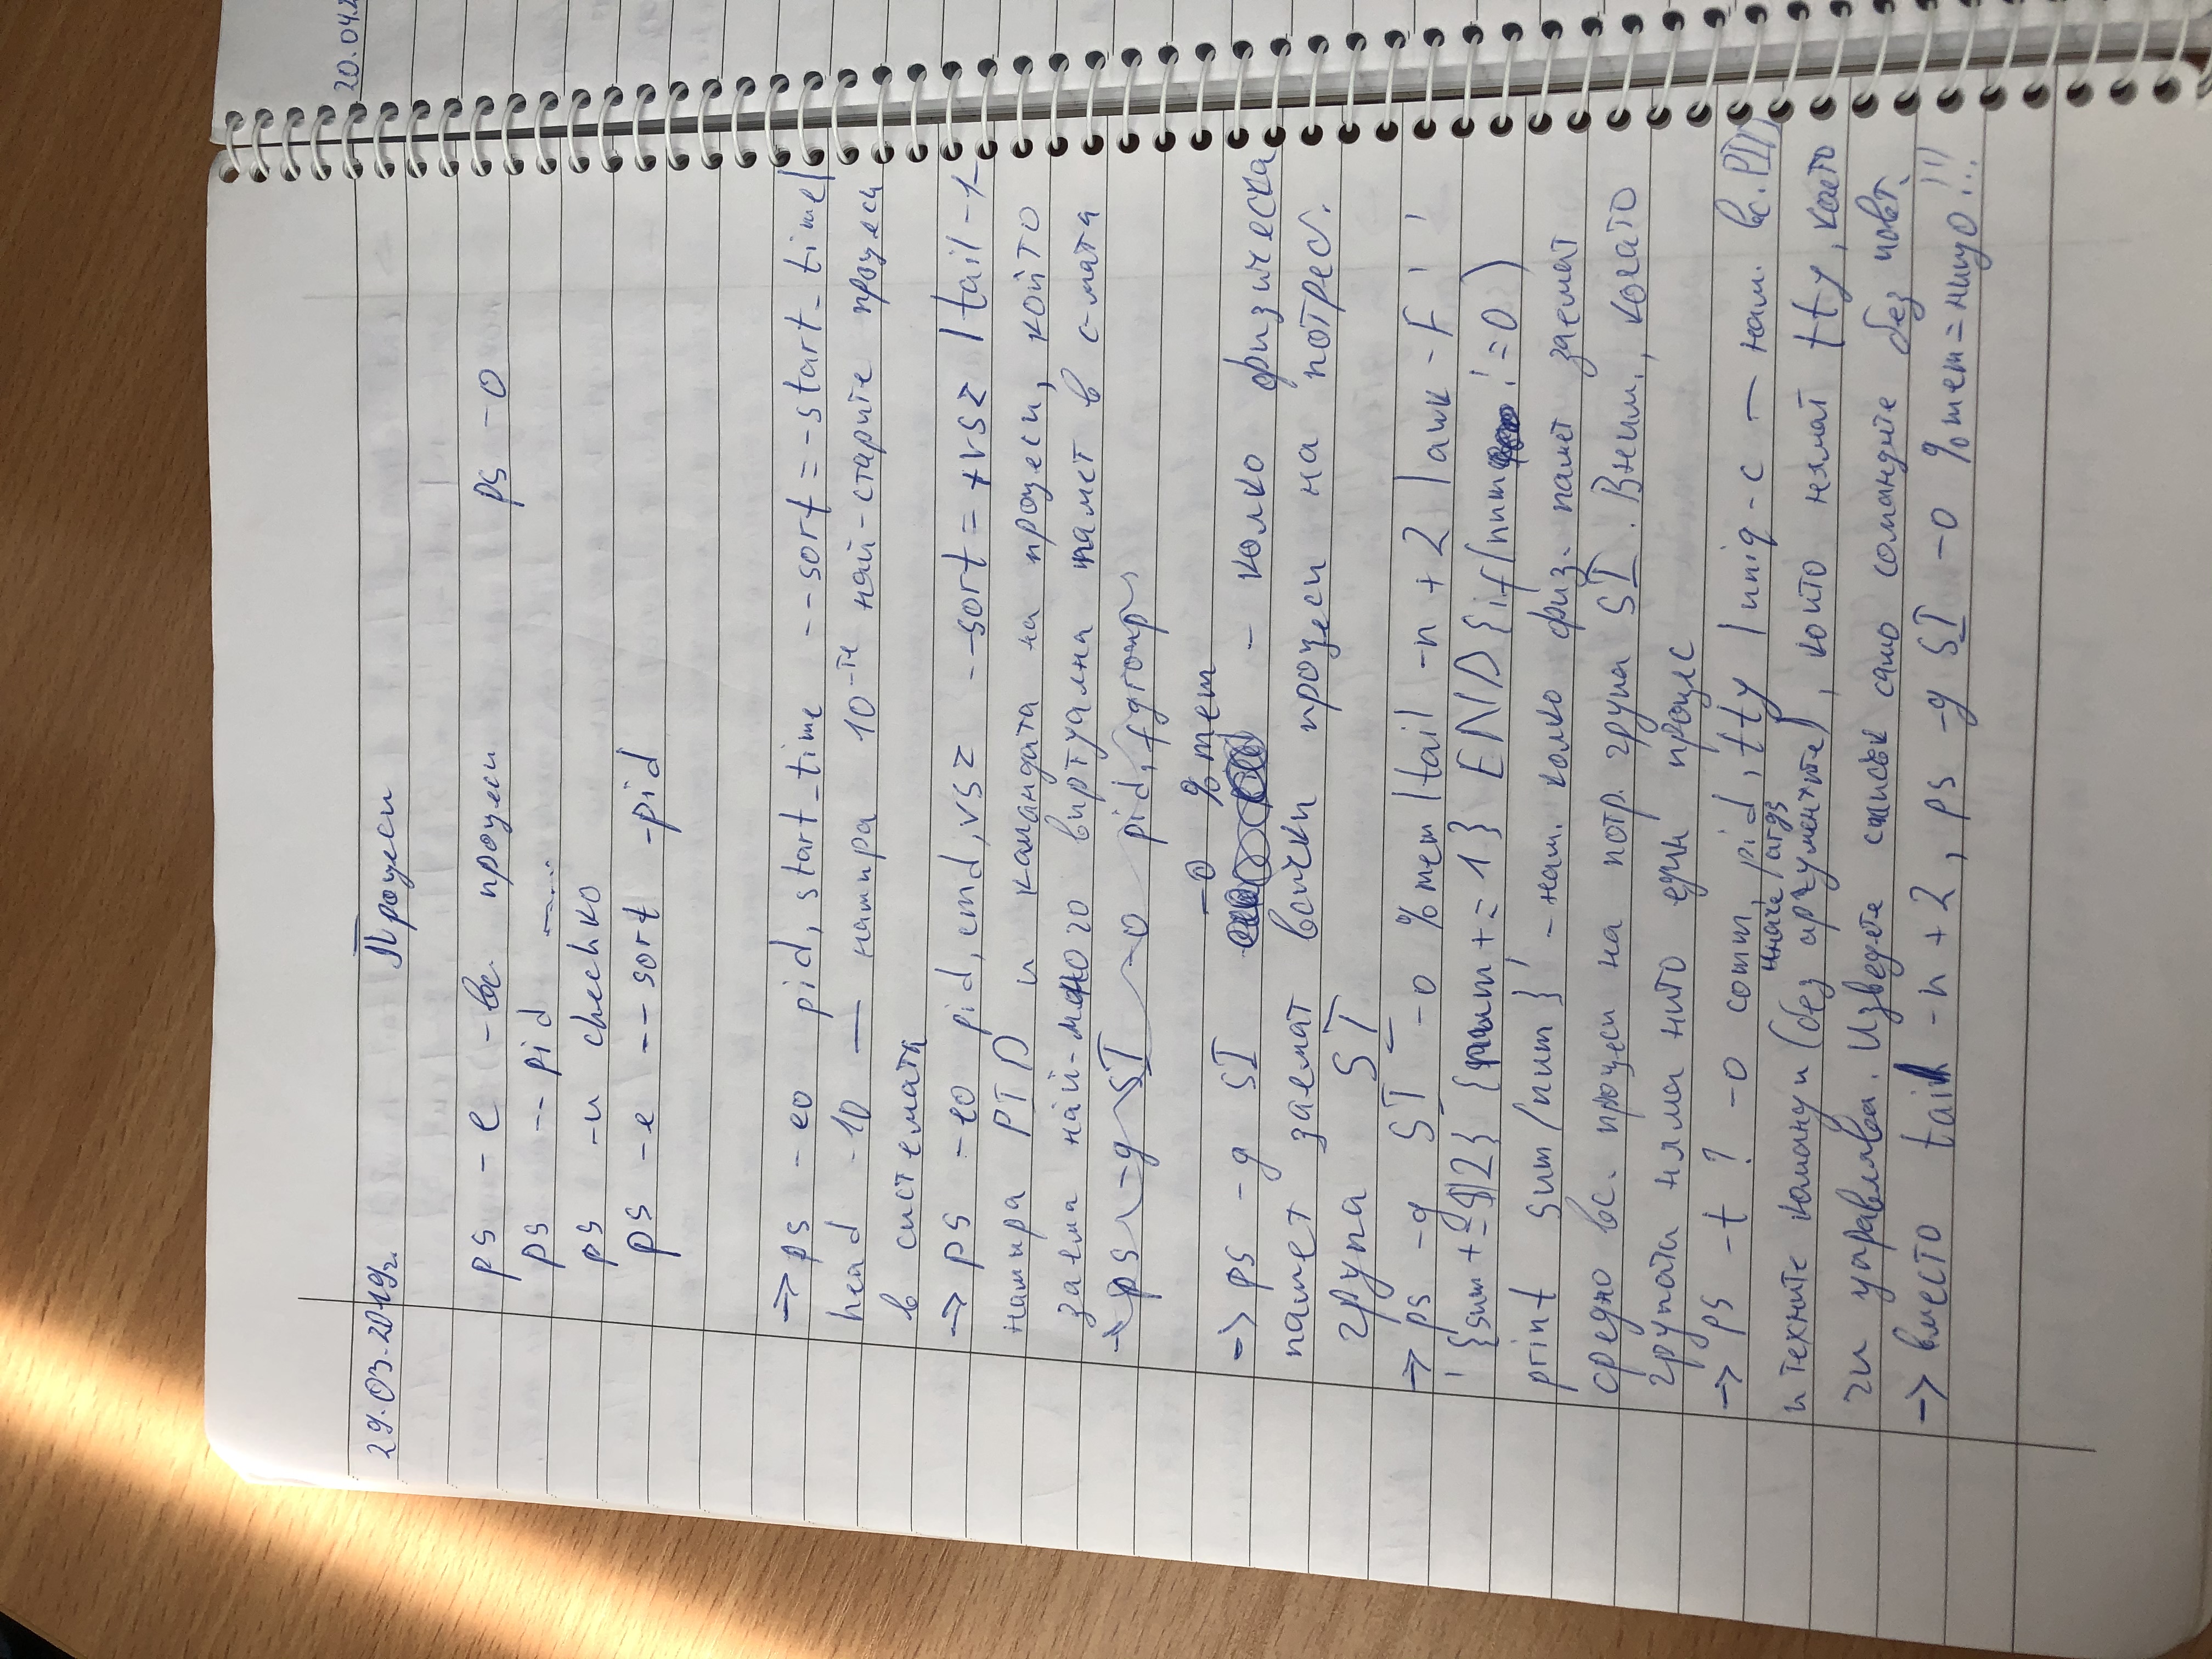 29.03.2019г.
Процеси
20.04.2
ps -e -вс. процеси ps -o
ps --pid .....
ps -u chechko
ps -e --sort -pid
→ ps -eo pid, start_time --sort = -start_time|
head -10 — намира 10-те най-старите процеси
в системата
→ ps -eo pid, cmd, vsz --sort = +vsz | tail -1-
намира PID и командата на процеси, който
заема най-много виртуална памет в с-мата
→ ps -g SI -o pid, fgroup
-o %mem
→ ps -g SI - колко физическа
памет заемат всички процеси на потреб.
група SI
→ ps -g SI -o %mem | tail -n +2 | awk -F ' '
'{sum += $2} {num += 1} END{if(num != 0)
print sum/num}' - нам. колко физ. памет заемат
средно вс. процеси на потр. група SI. Вним., когато
групата няма нито един процес
→ ps -t ? -o comm, pid, tty | uniq -c — нам. вс. PID
иначе args
и техните команди (без аргументите), които нямат tty, което
ги управлява. Изведете списък само командите без повт.
→ вместо tail -n +2, ps -g SI -o %mem=нищо!!!